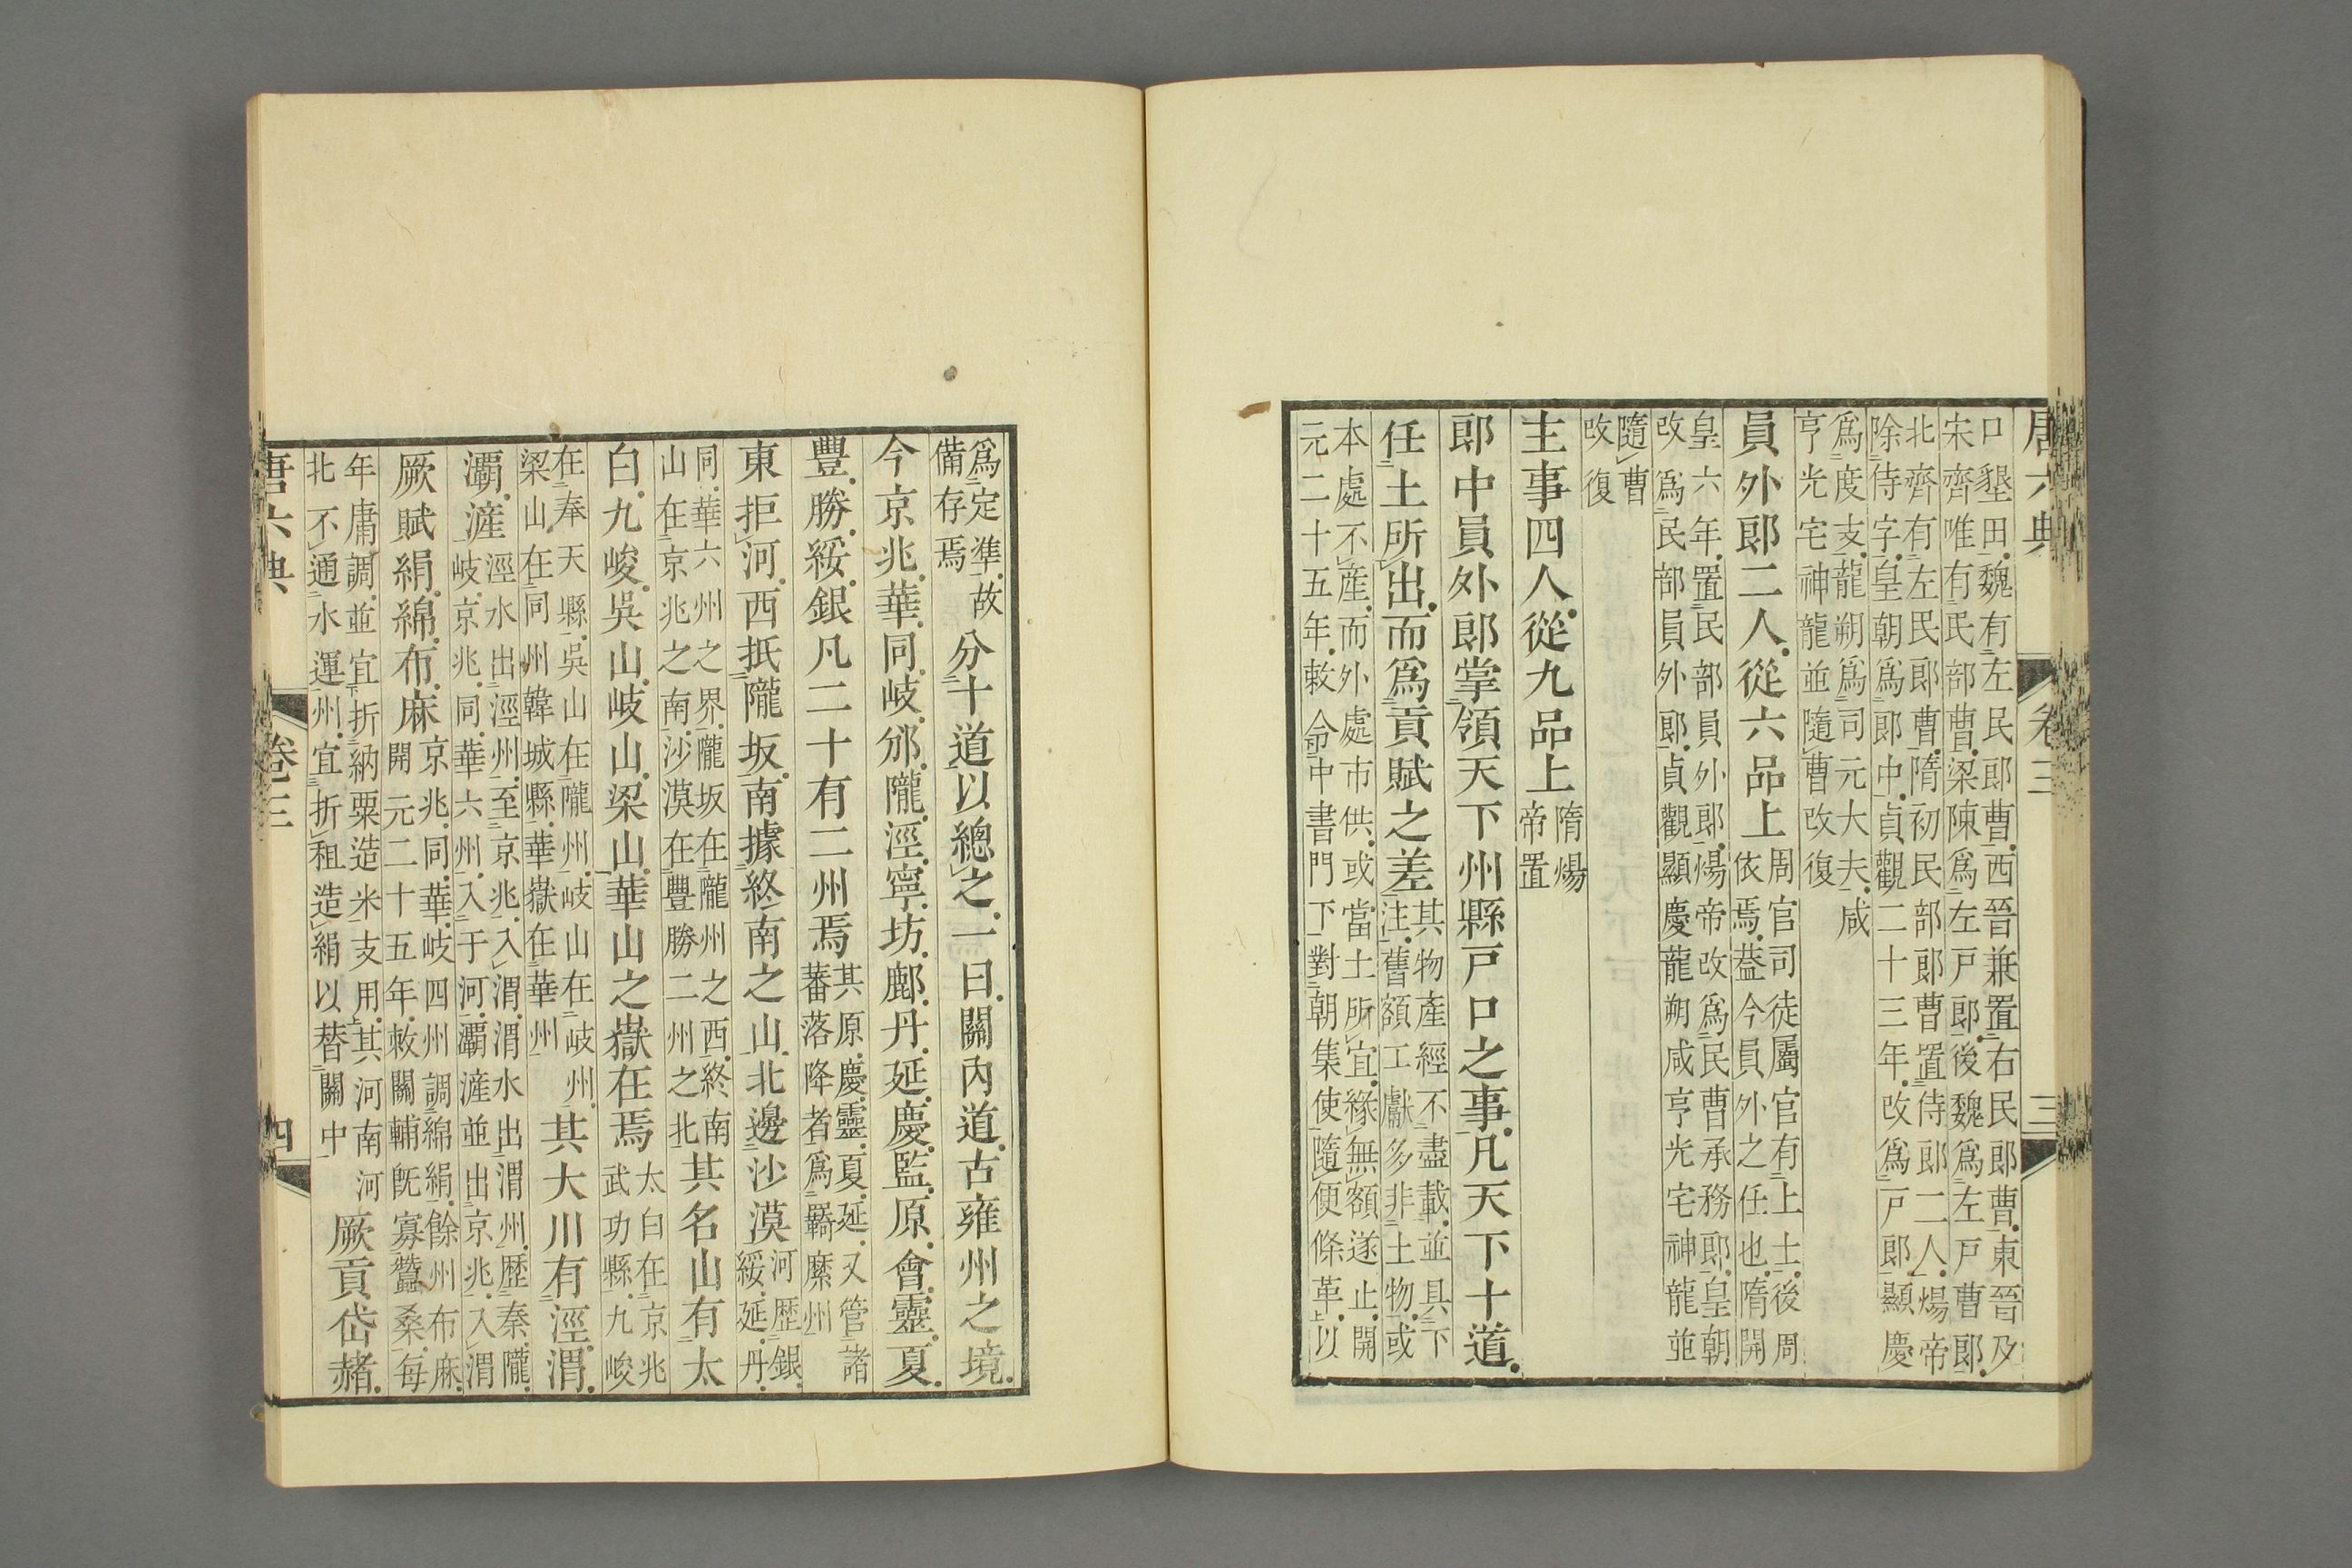 唐六典 卷三 三
口墾田魏有左民郎曹西晉兼置右民郎曹東晉及
宋齊唯有民部曹梁陳爲左戸郎後魏爲左戸曹郎
北齊有左民郎曹隋初民部郎曹置侍郎二人煬帝
除侍字皇朝爲郎中貞觀二十三年改爲戸郎顯慶
爲度支龍朔爲司元大夫咸
亨光宅神龍並隨曹改復
員外郎二人從六品上
周官司徒屬官有上士後周
依焉葢今員外之任也隋開
皇六年置民部員外郎煬帝改爲民曹承務郎皇朝
改爲民部員外郎貞觀顯慶龍朔咸亨光宅神龍並
隨曹
改復
主事四人從九品上
隋煬
帝置
郎中員外郎掌領天下州縣戸口之事凡天下十道
任土所出而爲貢賦之差
其物產經不盡載並具下
注舊額工獻多非土物或
本處不產而外處市供或當土所宜緣無額遂止開
元二十五年敕令中書門下對朝集使隨便條革以
爲定準故
備存焉
分十道以總之一曰關內道古雍州之境
今京兆華同岐邠隴涇寧坊鄜丹延慶監原會靈夏
豐勝綏銀凡二十有二州焉
其原慶靈夏延又管諸
蕃落降者爲羈縻州
東拒河西抵隴坂南據終南之山北邊沙漠
河歷銀
綏延丹
同華六州之界隴坂在隴州之西終南
山在京兆之南沙漠在豐勝二州之北
其名山有太
白九嵕吳山岐山梁山華山之嶽在焉
太白在京兆
武功縣九嵕
在奉天縣吳山在隴州岐山在岐州
梁山在同州韓城縣華嶽在華州
其大川有涇渭
灞滻
涇水出涇州至京兆入渭渭水出渭州歷秦隴
岐京兆同華六州入于河灞滻並出京兆入渭
厥賦絹綿布麻
京兆同華岐四州調綿絹餘州布麻
開元二十五年敕關輔旣寡蠶桑每
年庸調並宜折納粟造米支用其河南河
北不通水運州宜折租造絹以替關中
厥貢岱赭
唐六典 卷三 四